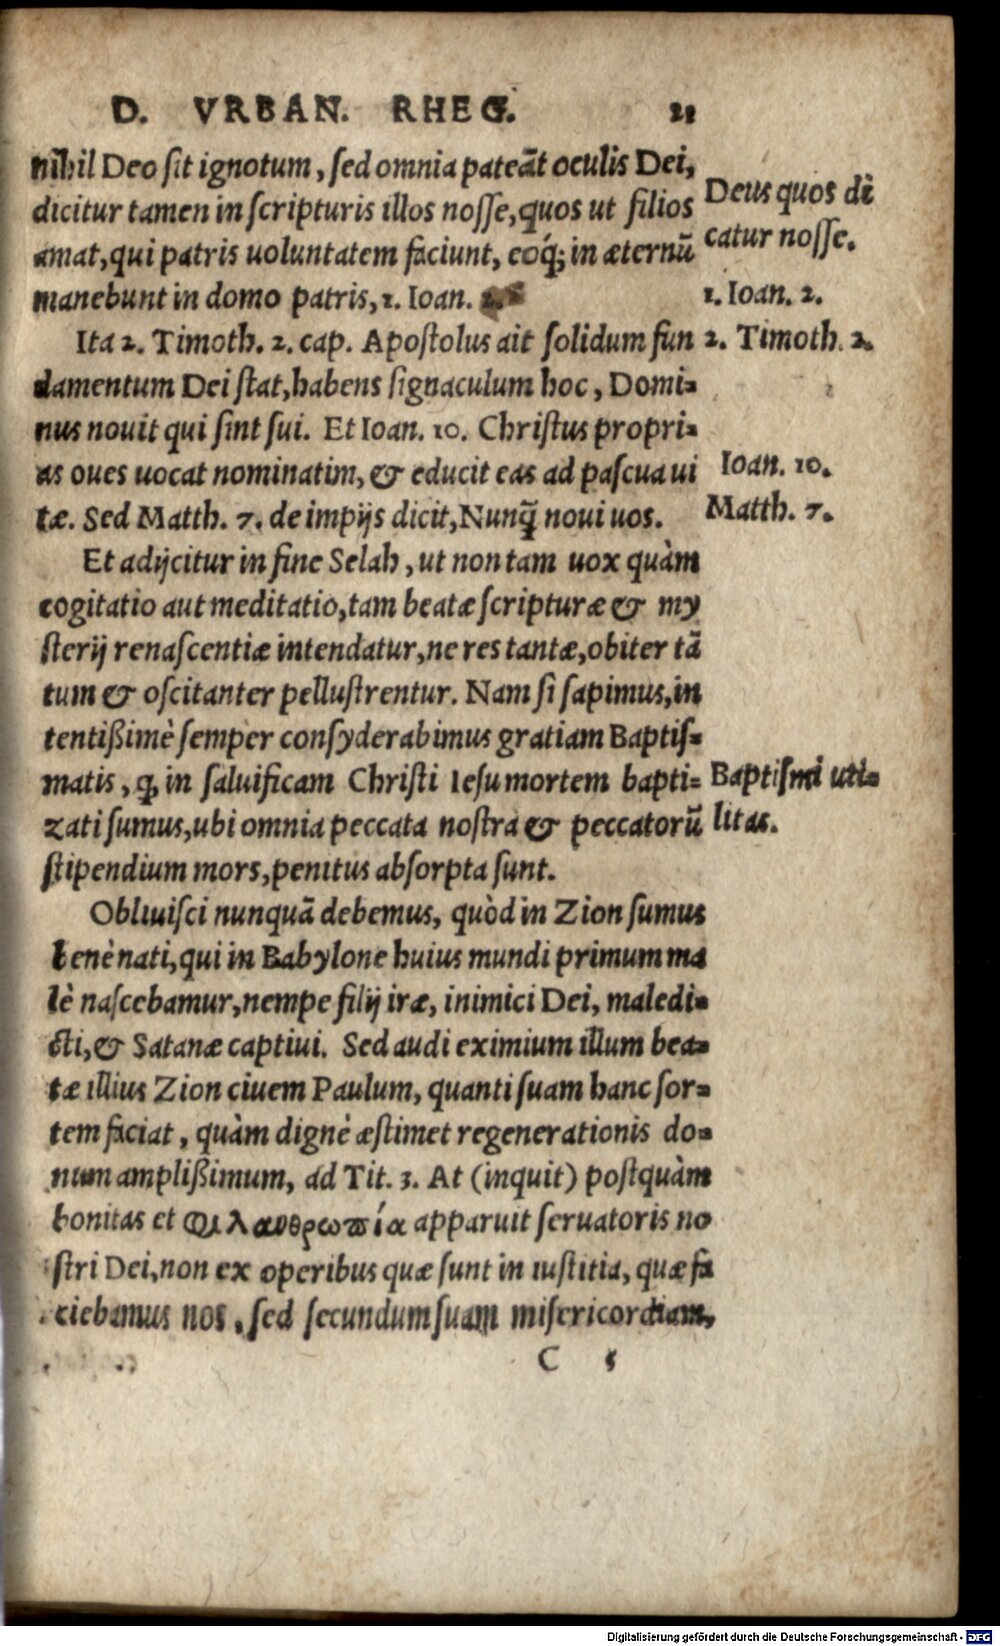 D. VRBAN. RHEG. 21
nihil Deo sit ignotum, sed omnia pateāt oculis Dei,
dicitur tamen in scripturis illos nosse, quos ut filios
amat, qui patris uoluntatem faciunt, eoq́; in æternū
manebunt in domo patris, 1. Ioan.
Ita 2. Timoth. 2. cap. Apostolus ait solidum fun
damentum Dei stat, habens signaculum hoc, Domi-
nus nouit qui sint sui. Et Ioan. 10. Christus propri-
as oues uocat nominatim, & educit eas ad pascua ui
tæ. Sed Matth. 7. de impijs dicit, Nunq̃ noui uos.
Et adijcitur in fine Selah, ut non tam uox quàm
cogitatio aut meditatio, tam beatæ scripturæ & my
sterij renascentiæ intendatur, ne res tantæ, obiter tā
tum & oscitanter pellustrentur. Nam si sapimus, in
tentißimè semper consyderabimus gratiam Baptis-
matis, ꝙ in saluificam Christi Iesu mortem bapti-
zati sumus, ubi omnia peccata nostra & peccatorū
stipendium mors, penitus absorpta sunt.
Obliuisci nunquā debemus, quòd in Zion sumus
benè nati, qui in Babylone huius mundi primum ma
lè nascebamur, nempe filij iræ, inimici Dei, maledi-
cti, & Satanæ captiui. Sed audi eximium illum bea-
tæ illius Zion ciuem Paulum, quanti suam hanc sor-
tem faciat, quàm dignè æstimet regenerationis do-
num amplißimum, ad Tit. 3. At (inquit) postquàm
bonitas et Φιλανθρωπία apparuit seruatoris no
stri Dei, non ex operibus quæ sunt in iustitia, quæ fa
ciebamus nos, sed secundum suam misericordiam,
C 5
Deus quos di
catur nosse.
1. Ioan. 2.
2. Timoth. 2.
Ioan. 10.
Matth. 7.
Baptismi uti-
litas.
Digitalisierung gefördert durch die Deutsche Forschungsgemeinschaft - DFG